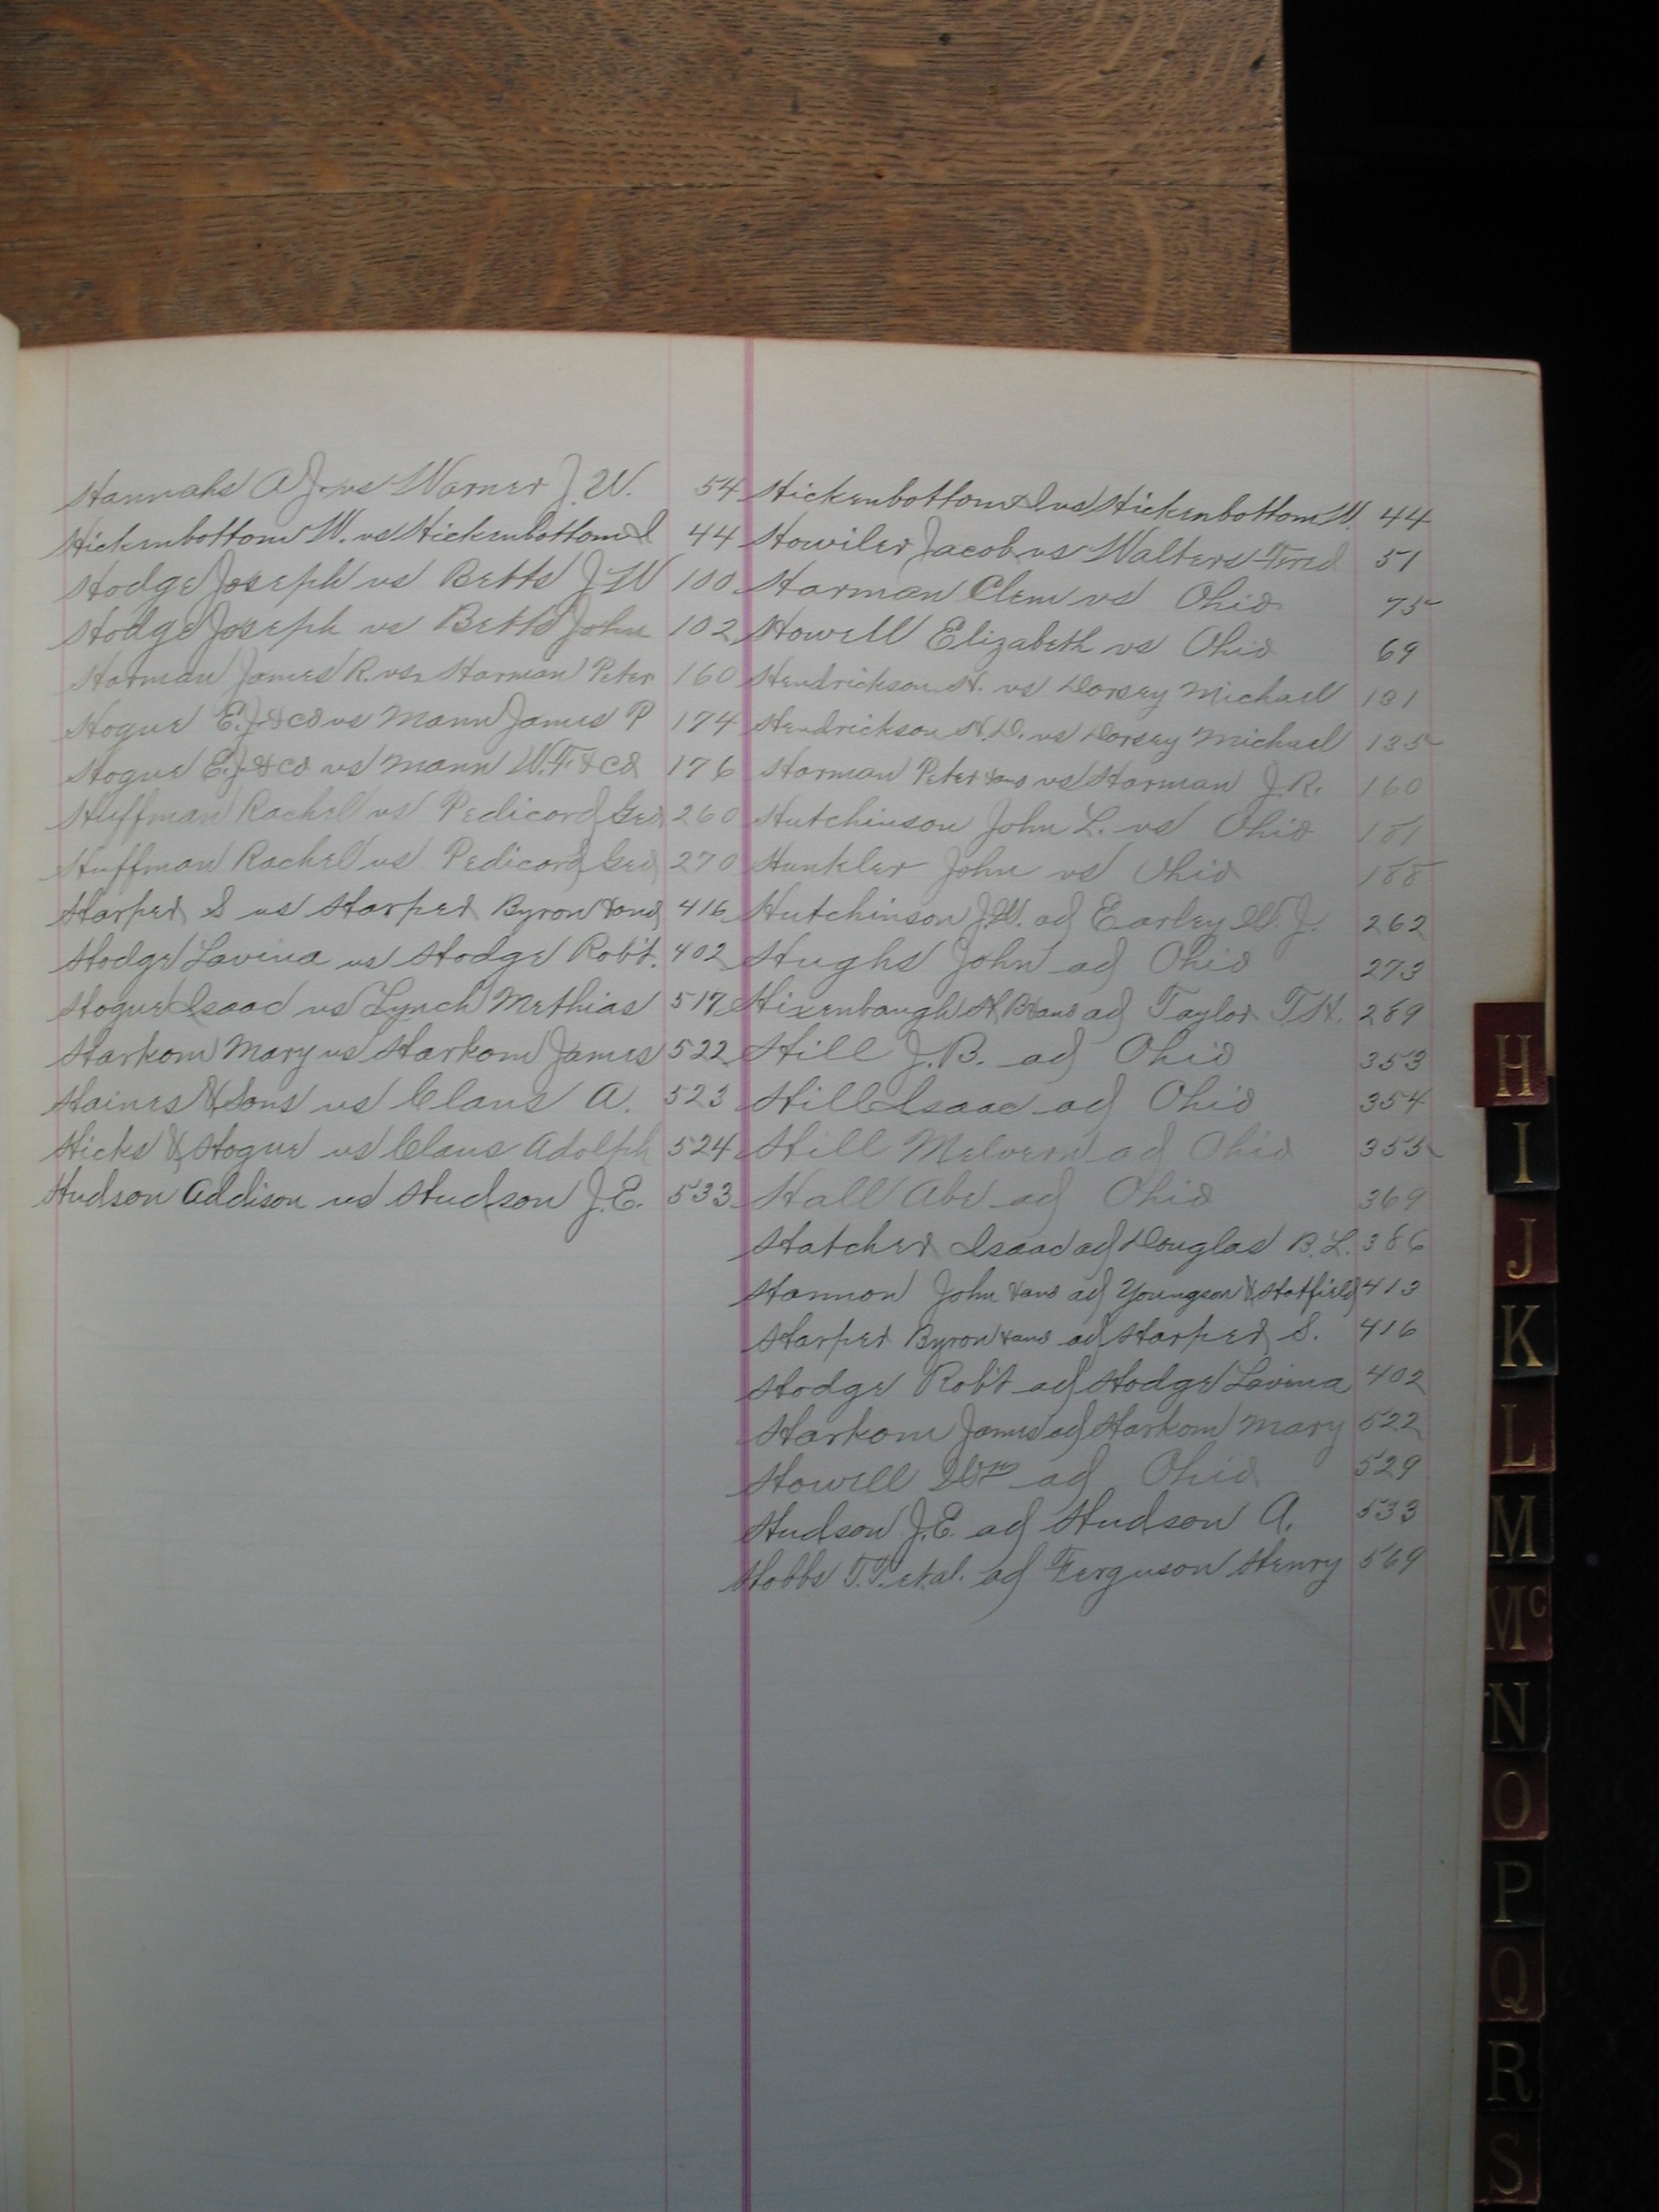 Hannahs A J. vs Warner J. W. 54
Hickenbottom W. vs Hickenbottom I 44
Hodge Joseph vs Betts J W 100
Hodge Joseph vs Betts John 102
Harman James R. vs Harman Peter 160
Hogue E. J. & Co vs Mann James P 174
Hogue E. J. & Co vs Mann W. F. & Co 176
Huffman Rachel vs Pedicord Geo 260
Huffman Rachel vs Pedicord Geo 270
Harper S vs Harper Byron & ano 416
Hodge Lavina vs Hodge Robt. 402
Hogue Isaac vs Lynch Methias 517
Harkom Mary vs Harkom James 522
Haines & Sons vs Claus A. 523
Hicks & Hogue vs Claus Adolph 524
Hudson Addison vs Hudson J. E. 533
Hickenbottom I vs Hickenbottom W. 44
Howiler Jacob vs Walters Fred 51
Harman Clem vs Ohio 75
Howell Elizabeth vs Ohio 69
Hendrickson H. vs Dorsey Michael 131
Hendrickson H. D. vs Dorsey Michael 135
Harman Peter & ano vs Harman J. R. 160
Hutchinson John L. vs Ohio 181
Hunkler John vs Ohio 188
Hutchinson J. W. ad Earley W. J. 262
Hughs John ad Ohio 273
Hixenbaugh H B & ano ad Taylor T. H. 289
Hill J. B. ad Ohio 353
Hill Isaac ad Ohio 354
Hill Melvern ad Ohio 355
Hall Abe ad Ohio 369
Hatcher Isaac ad Douglas B. L. 386
Hannon John & ano ad Youngson & Hatfield 413
Harper Byron & ano ad Harper S. 416
Hodge Robt ad Hodge Lavina 402
Harkom James ad Harkom Mary 522
Howell Wm ad Ohio 529
Hudson J. E. ad Hudson A. 533
Hobbs T. T. et al. ad Ferguson Henry 569
H
I
J
K
L
M
Mc
N
O
P
Q
R
S